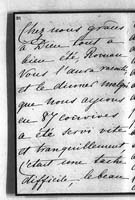 Chez nous grâces
à Dieu tout a
bien été, Roman
vous l'aura raconté
et le diner malgré
que nous ayons
eu 87 convives
a été servi vite
et tranquillement
c'était une tache
difficile, le beau